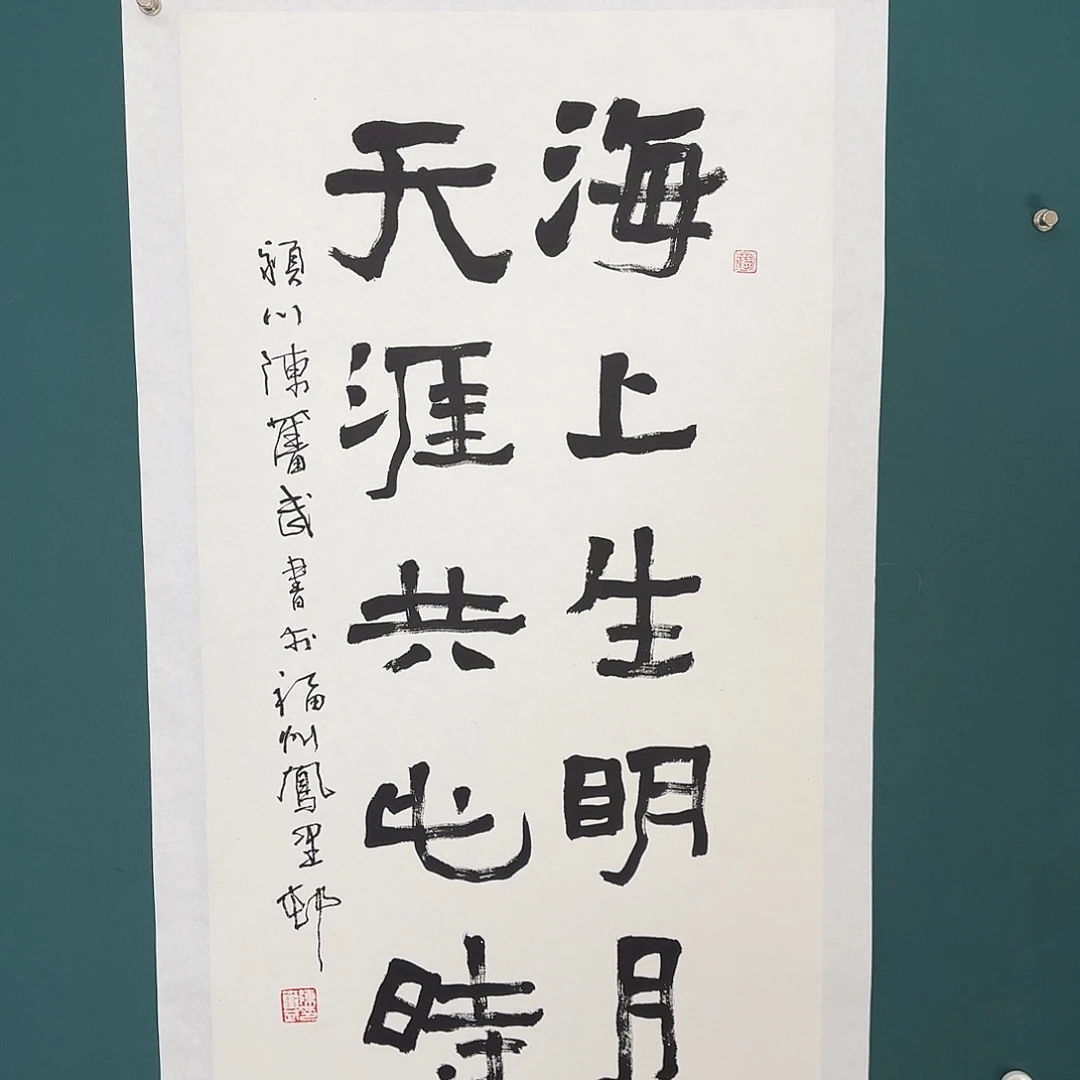 海上生明月
天涯共此時
潁川陳蕃武書於福州鳳里邨